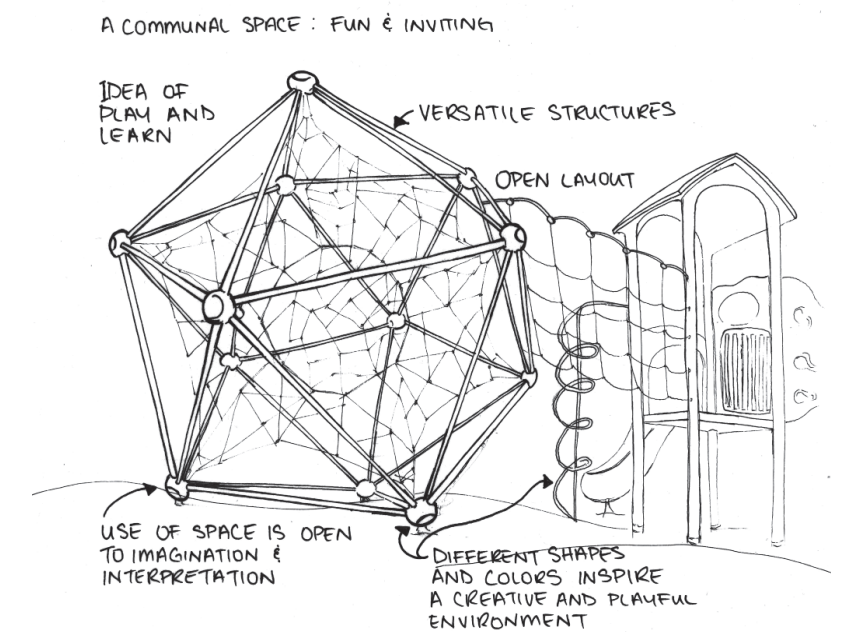 A COMMUNAL SPACE : FUN & INVITING
IDEA OF
PLAY AND
LEARN
VERSATILE STRUCTURES
OPEN LAYOUT
USE OF SPACE IS OPEN
TO IMAGINATION &
INTERPRETATION
DIFFERENT SHAPES
AND COLORS INSPIRE
A CREATIVE AND PLAYFUL
ENVIRONMENT